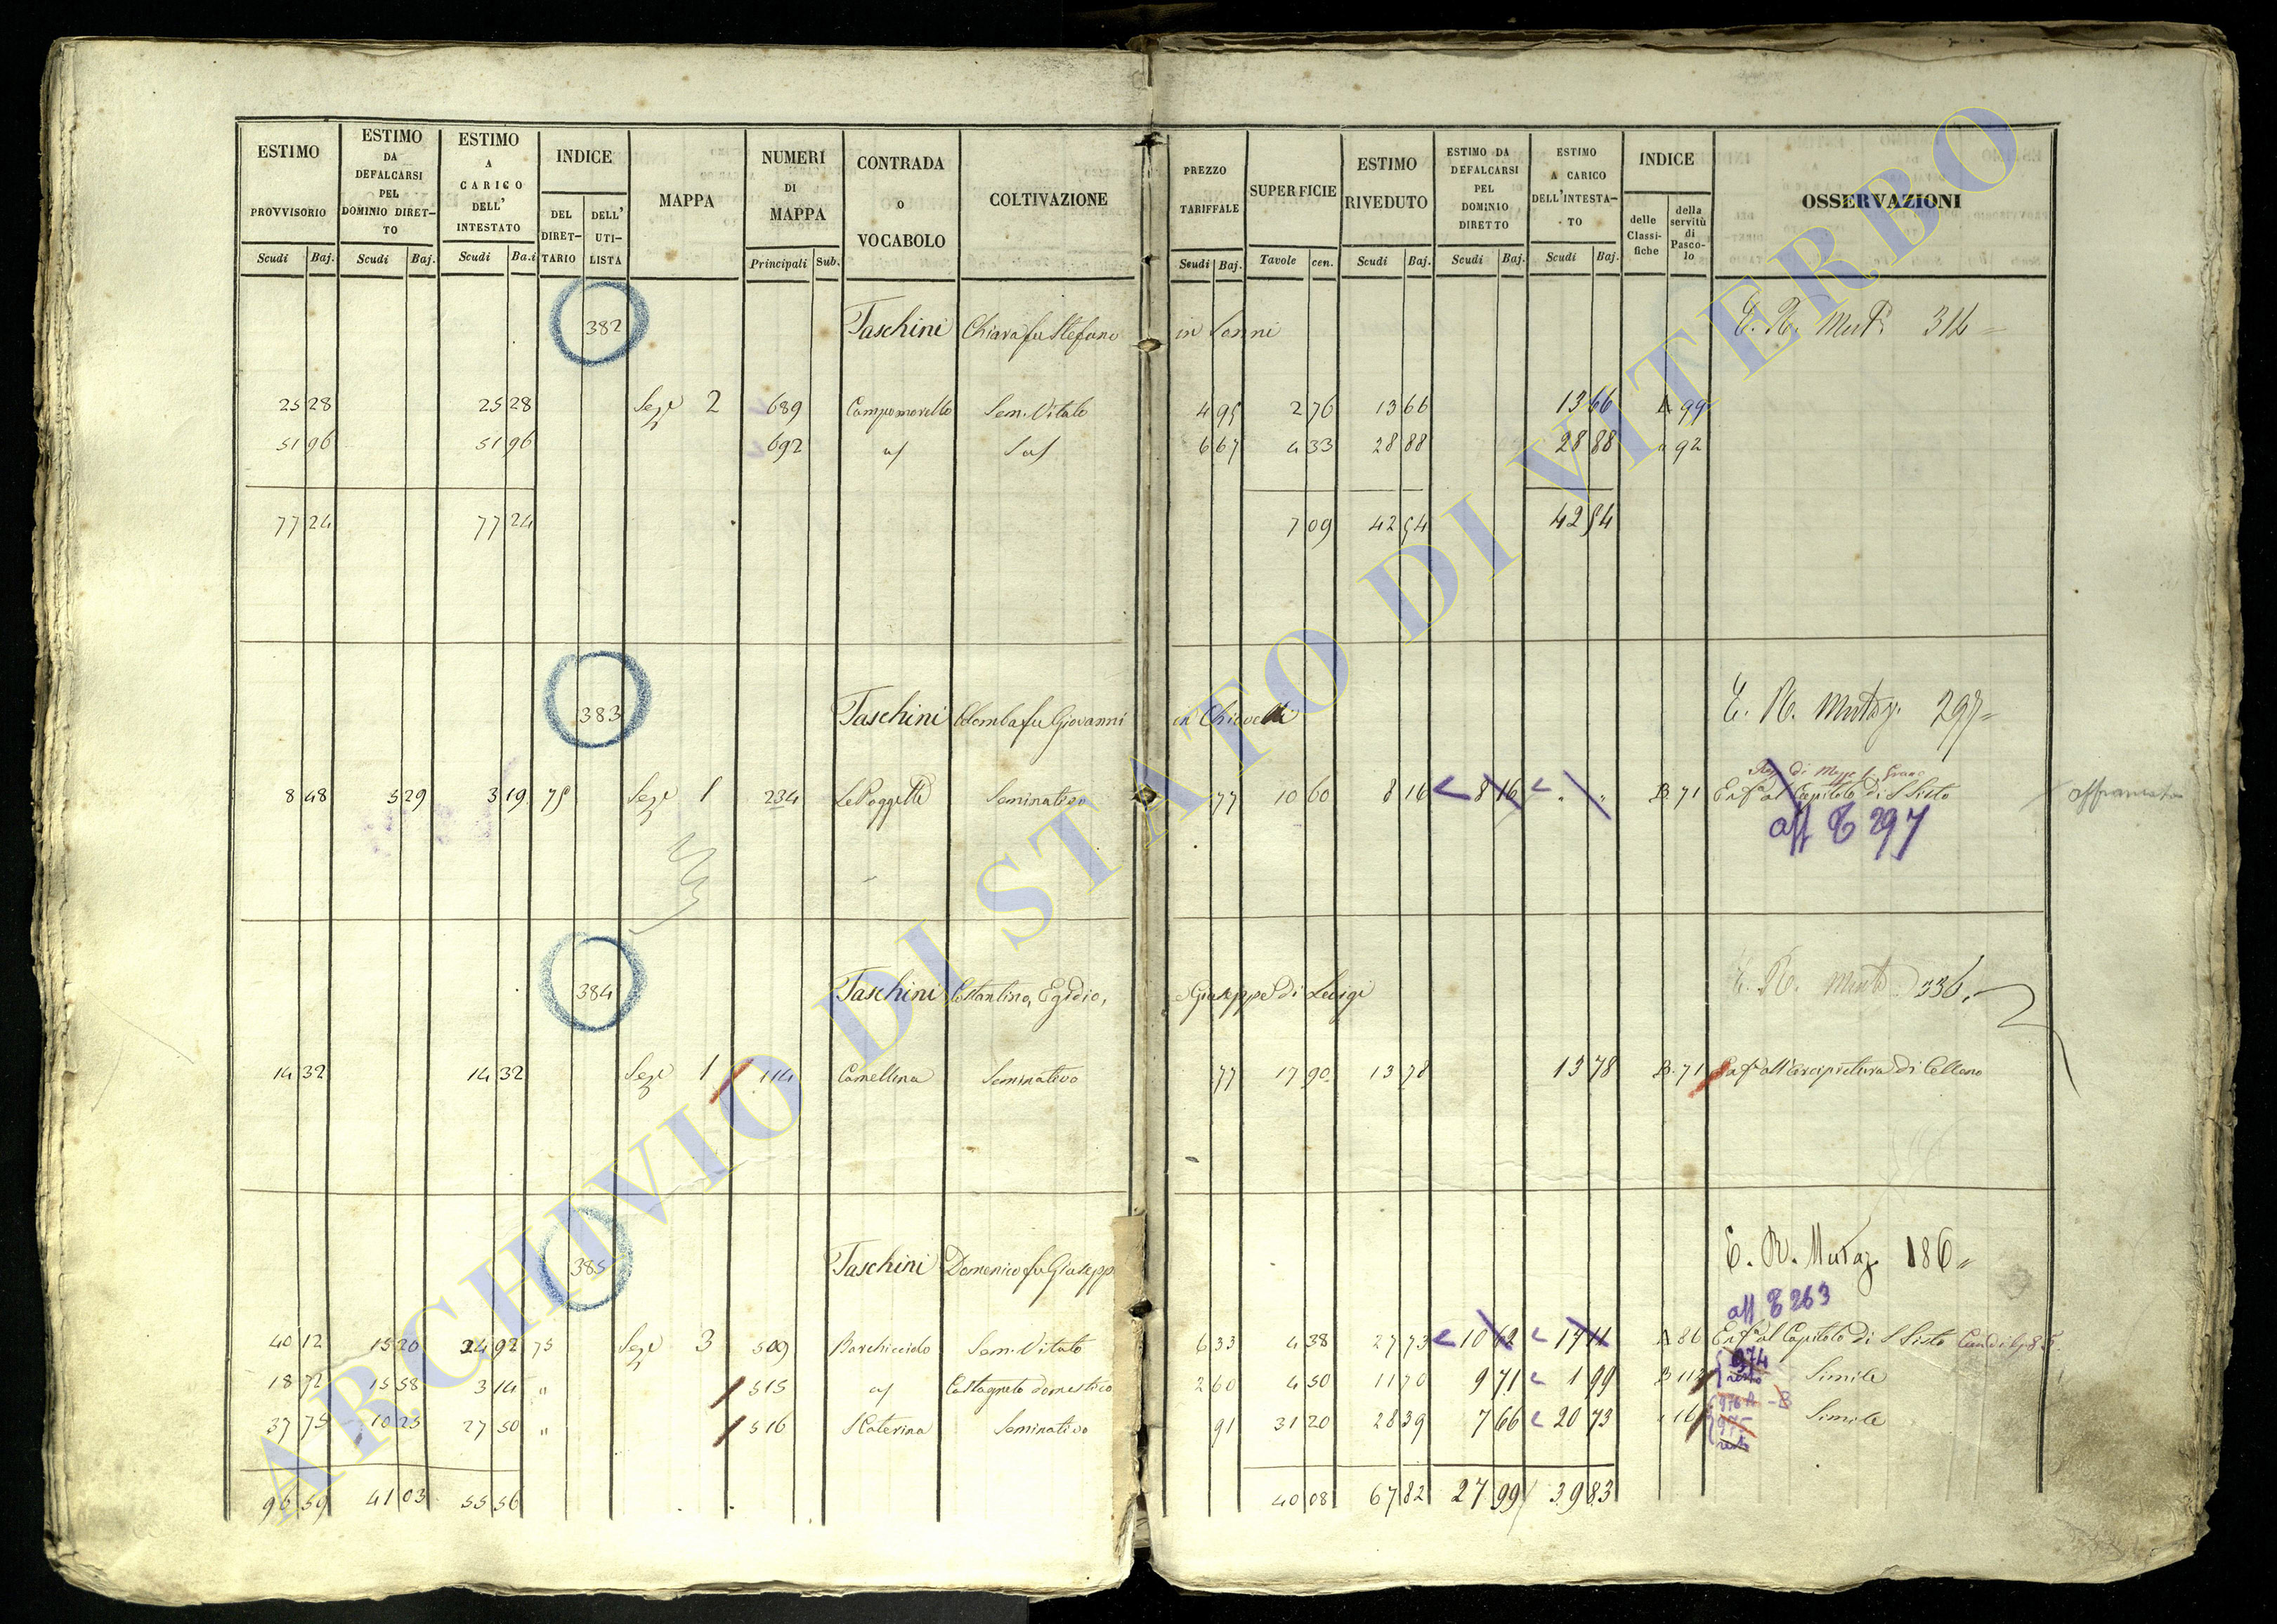 ESTIMO PROVVISORIO Scudi Baj.
ESTIMO DA DEFALCARSI PEL DOMINIO DIRET-TO Scudi Baj.
ESTIMO A CARICO DELL' INTESTATO Scudi Ba.i
INDICE DEL DIRET-TARIO DELL' UTI-LISTA
MAPPA
NUMERI DI MAPPA Principali Sub.
CONTRADA o VOCABOLO
COLTIVAZIONE
PREZZO TARIFFALE Scudi Baj.
SUPERFICIE Tavole cen.
ESTIMO RIVEDUTO Scudi Baj.
ESTIMO DA DEFALCARSI PEL DOMINIO DIRETTO Scudi Baj.
ESTIMO A CARICO DELL'INTESTA-TO Scudi Baj.
INDICE delle Classi-fiche della servitù di Pasco-lo
OSSERVAZIONI
382 Taschini Chiara fu Stefano in E. R. Mut. 314
25 28 25 28 Sez.e 2 689 Campomorello Sem. Vitato 4 95 2 76 13 66 13 66 A 99
51 96 51 96 692 6 67 4 33 28 88 28 88 " 92
77 24 77 24 7 09 42 54 42 54
383 Taschini Colomba fu Giovanni in E. R. Mutaz. 297
8 48 5 29 3 19 75 Sez.e 1 234 Le Poggette Seminativo 77 10 60 8 16 8 16 " " B. 71 Enf.a al Capitolo di S Sisto affrancato
aff T 297
384 Taschini Costantino, Egidio, e Giuseppe di Luigi E. R. Mut. 336
14 32 14 32 Sez.e 1 114 Camellina Seminativo 77 17 90 13 78 13 78 B. 71 Enf.a all'Arcipretura di Celleno
385 Taschini Domenico fu Giusepp E. R. Mutaz. 186
aff T 263
40 12 15 20 24 92 75 Sez.e 3 509 Barchicciolo Sem. Vitato 6 33 4 38 27 73 10 62 17 11 A 86 Enf.a al Capitolo di S Sisto
18 72 15 58 3 14 " 515 Castagneto domestico 2 60 4 50 11 70 9 71 1 99 B 112 974 resto Simile
37 75 10 25 27 50 " 516 S Caterina Seminativo 91 31 20 28 39 7 66 20 73 " 16 975 resto Simile
96 59 41 03 55 56 40 08 67 82 27 99 39 83
ARCHIVIO DI STATO DI VITERBO